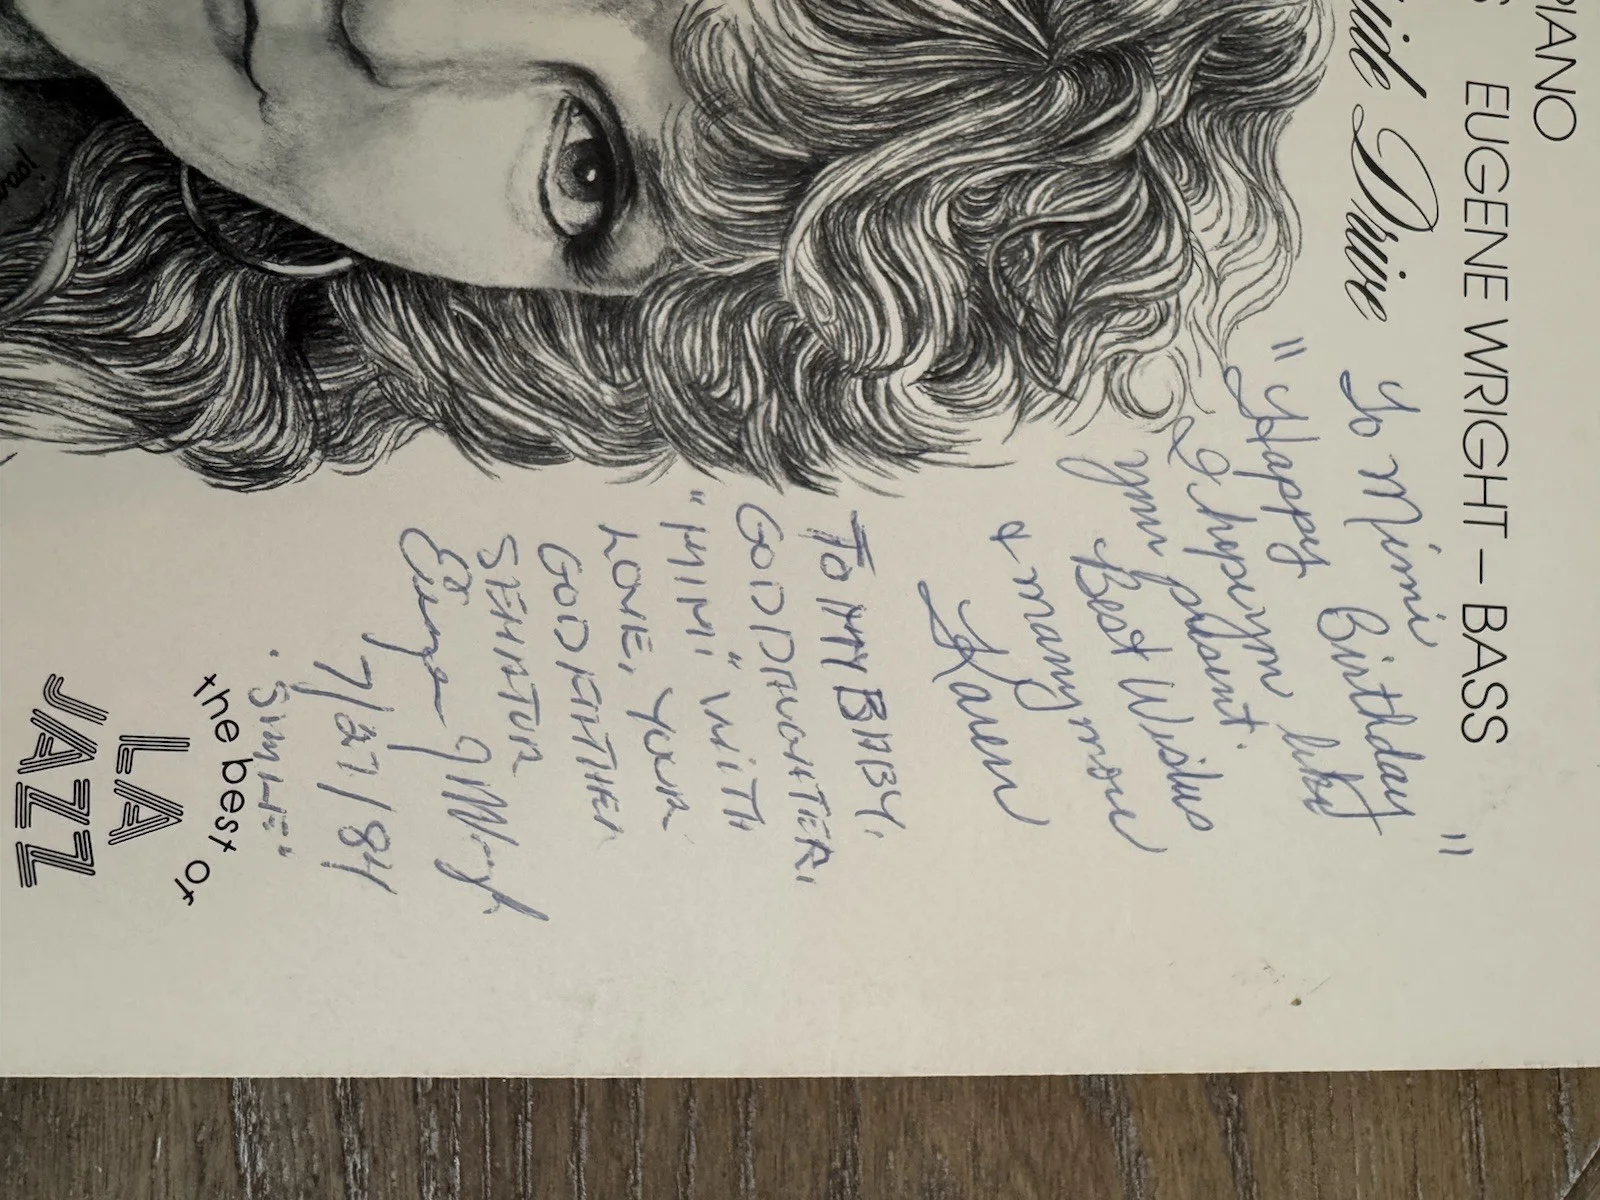 PIANO
S EUGENE WRIGHT – BASS
uide Drive
To Mimi
"Happy Birthday"
& I hope you like
your present.
Best Wishes
& many more
Karen
TO MY BABY,
GODDAUGHTER,
"MIMI" WITH
LOVE, YOUR
GODFATHER
SENATOR
Eugene J Wright
7/27/84
the best of
LA
JAZZ